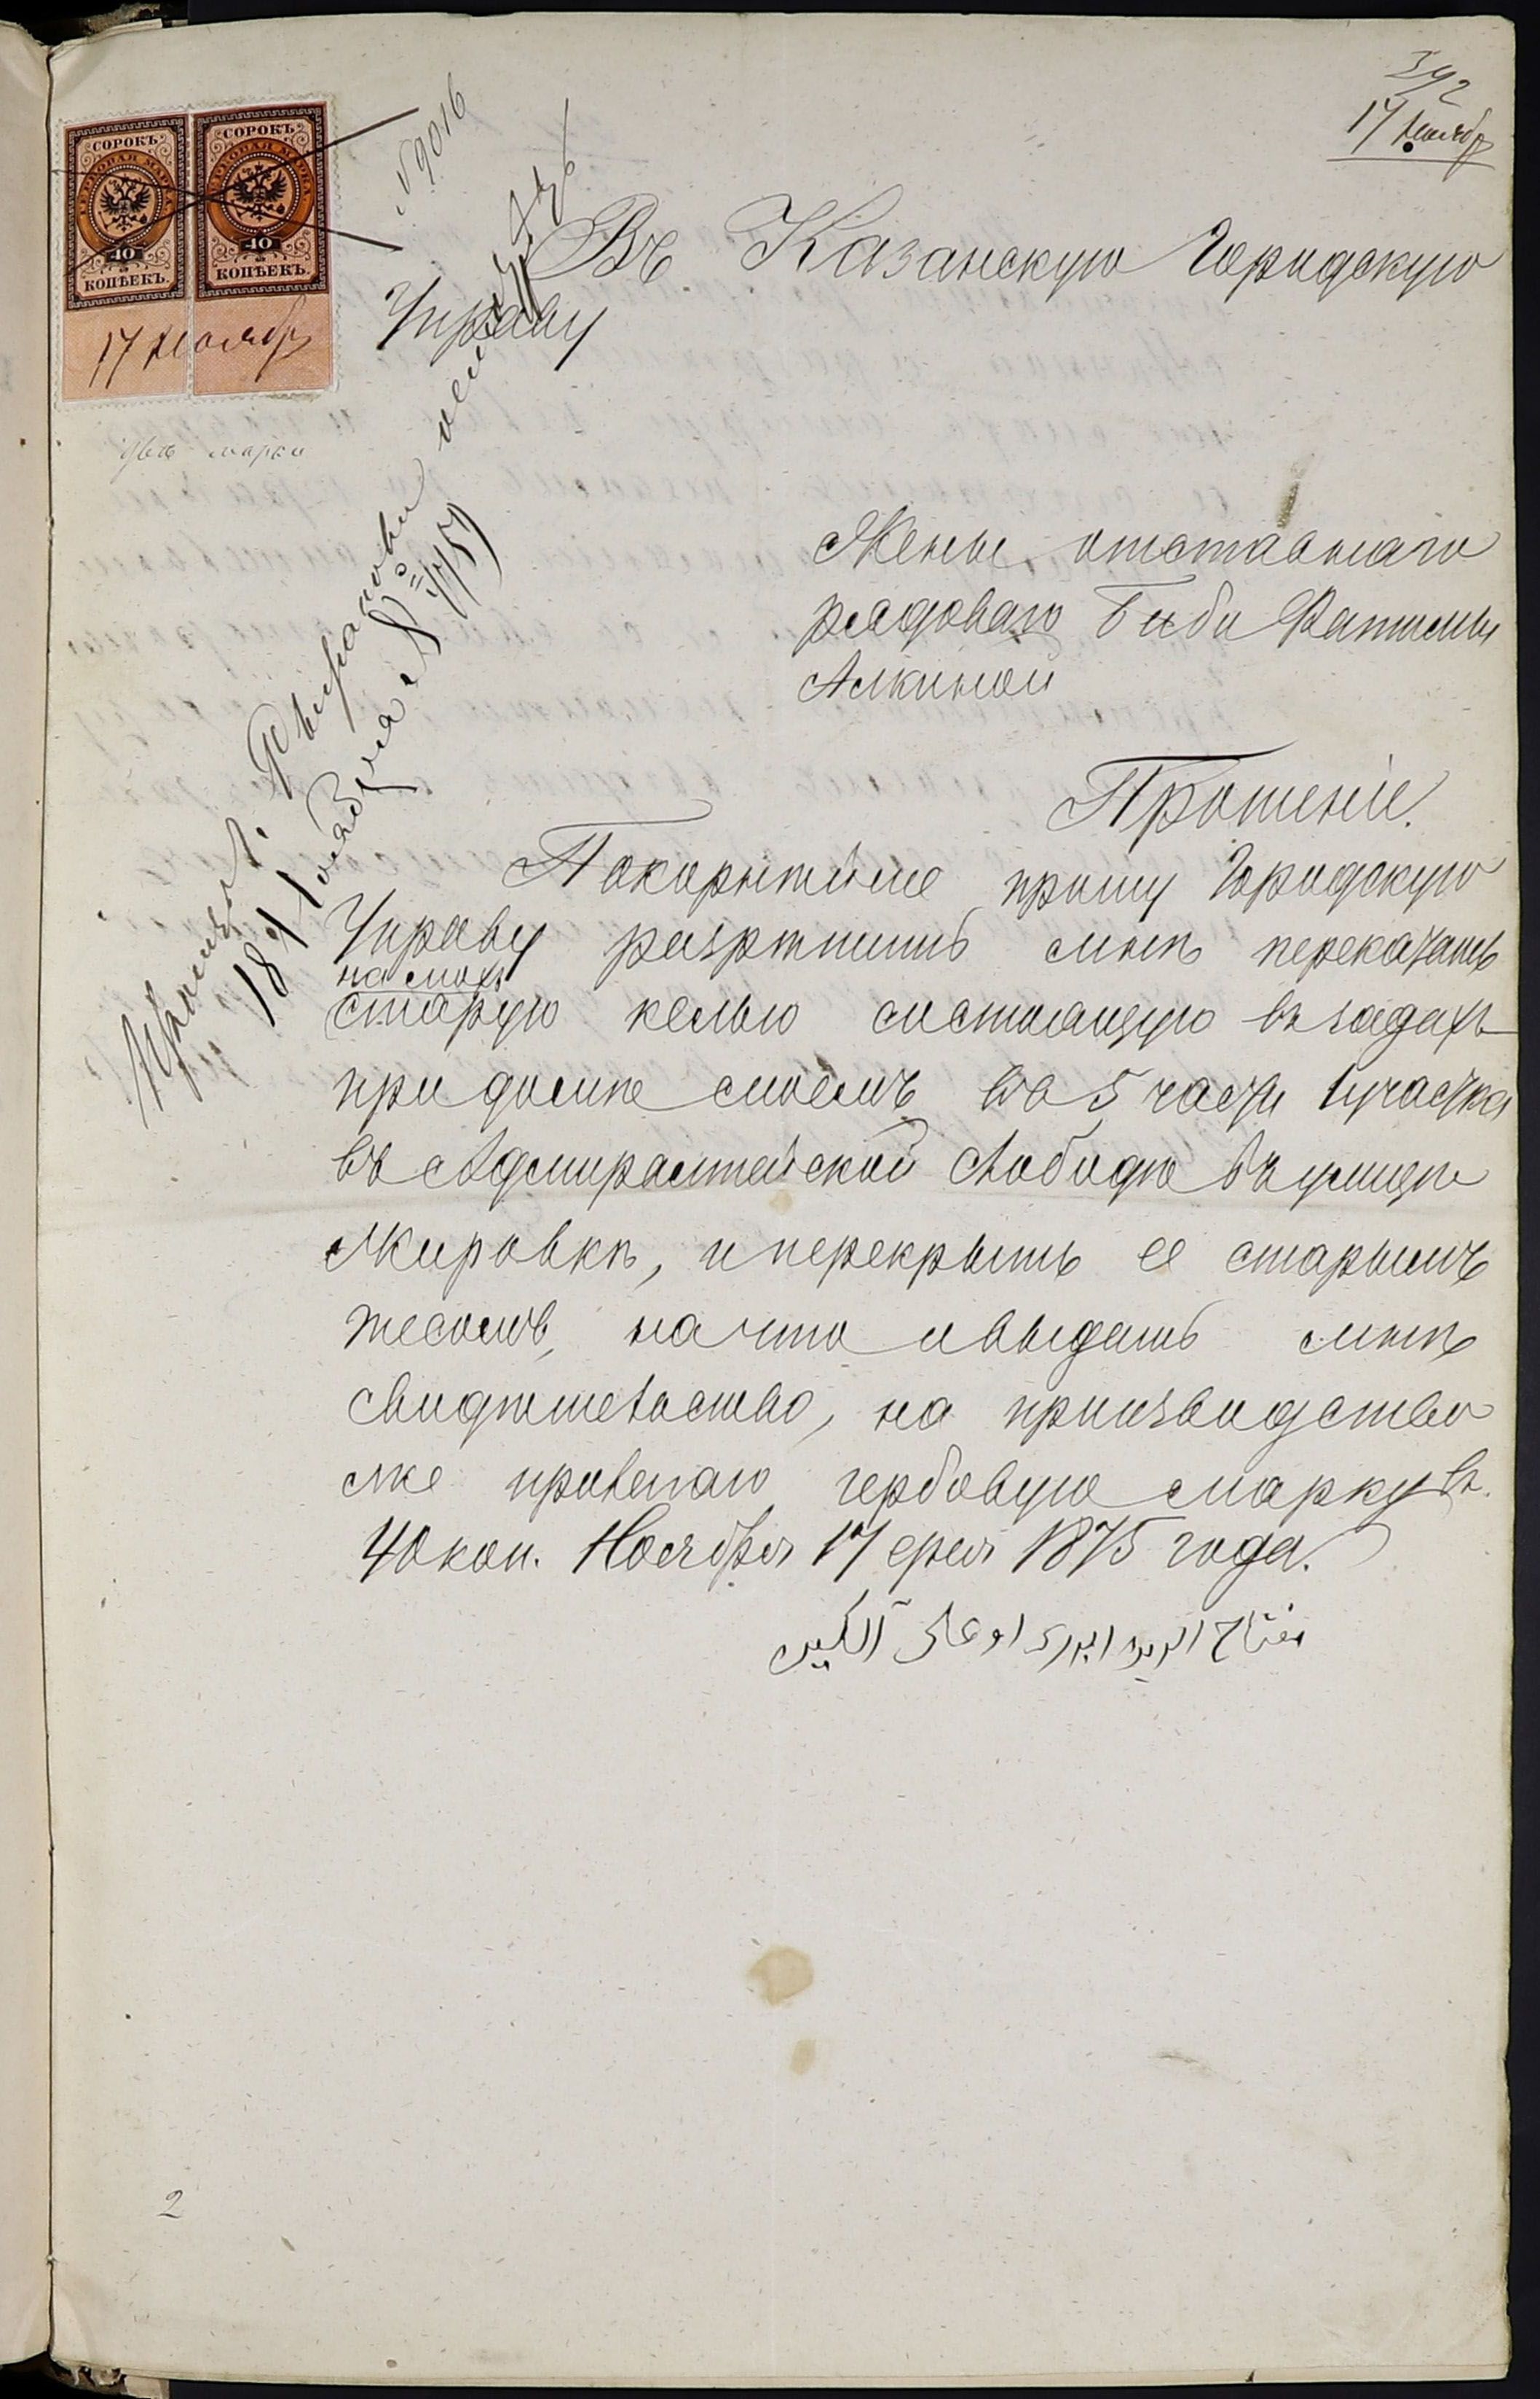 392
17 Ноябр
СОРОКЪ
ГЕРБОВАЯ МАРКА
40
КОПѢЕКЪ.
СОРОКЪ
ГЕРБОВАЯ МАРКА
40
КОПѢЕКЪ.
17 Ноябр
двѣ марки
№ 9016
Въ Казанскую Городскую
Управу
Жены отставнаго
рядоваго Биби Фатимы
Алкиной
Прошеніе.
Покорнѣйше прошу Городскую
Управу разрѣшить мнѣ перекатать
на мохъ
старую келью состоящую въ задахъ
при доме моемъ во 5 части 1 участка
въ Адмиралтейской слободѣ въ улицѣ
Жировкѣ, и перекрыть ее старымъ
тесомъ, на что и выдать мнѣ
свидѣтельство, на производство
же прилагаю гербовую марку въ
40 коп. Ноября 17 дня 1875 года.
2